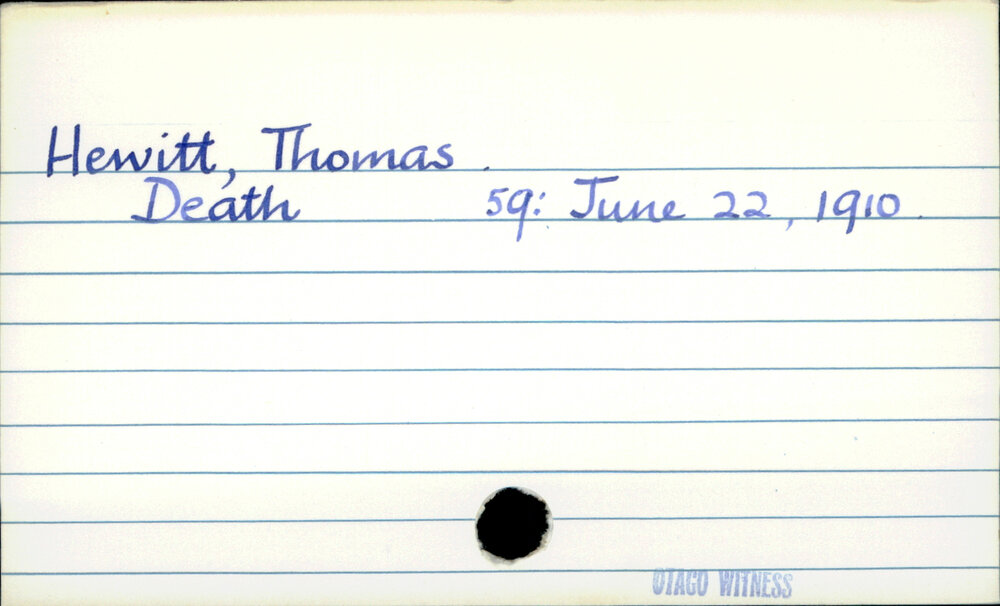 Hewitt, Thomas.
Death 59: June 22, 1910.
OTAGO WITNESS